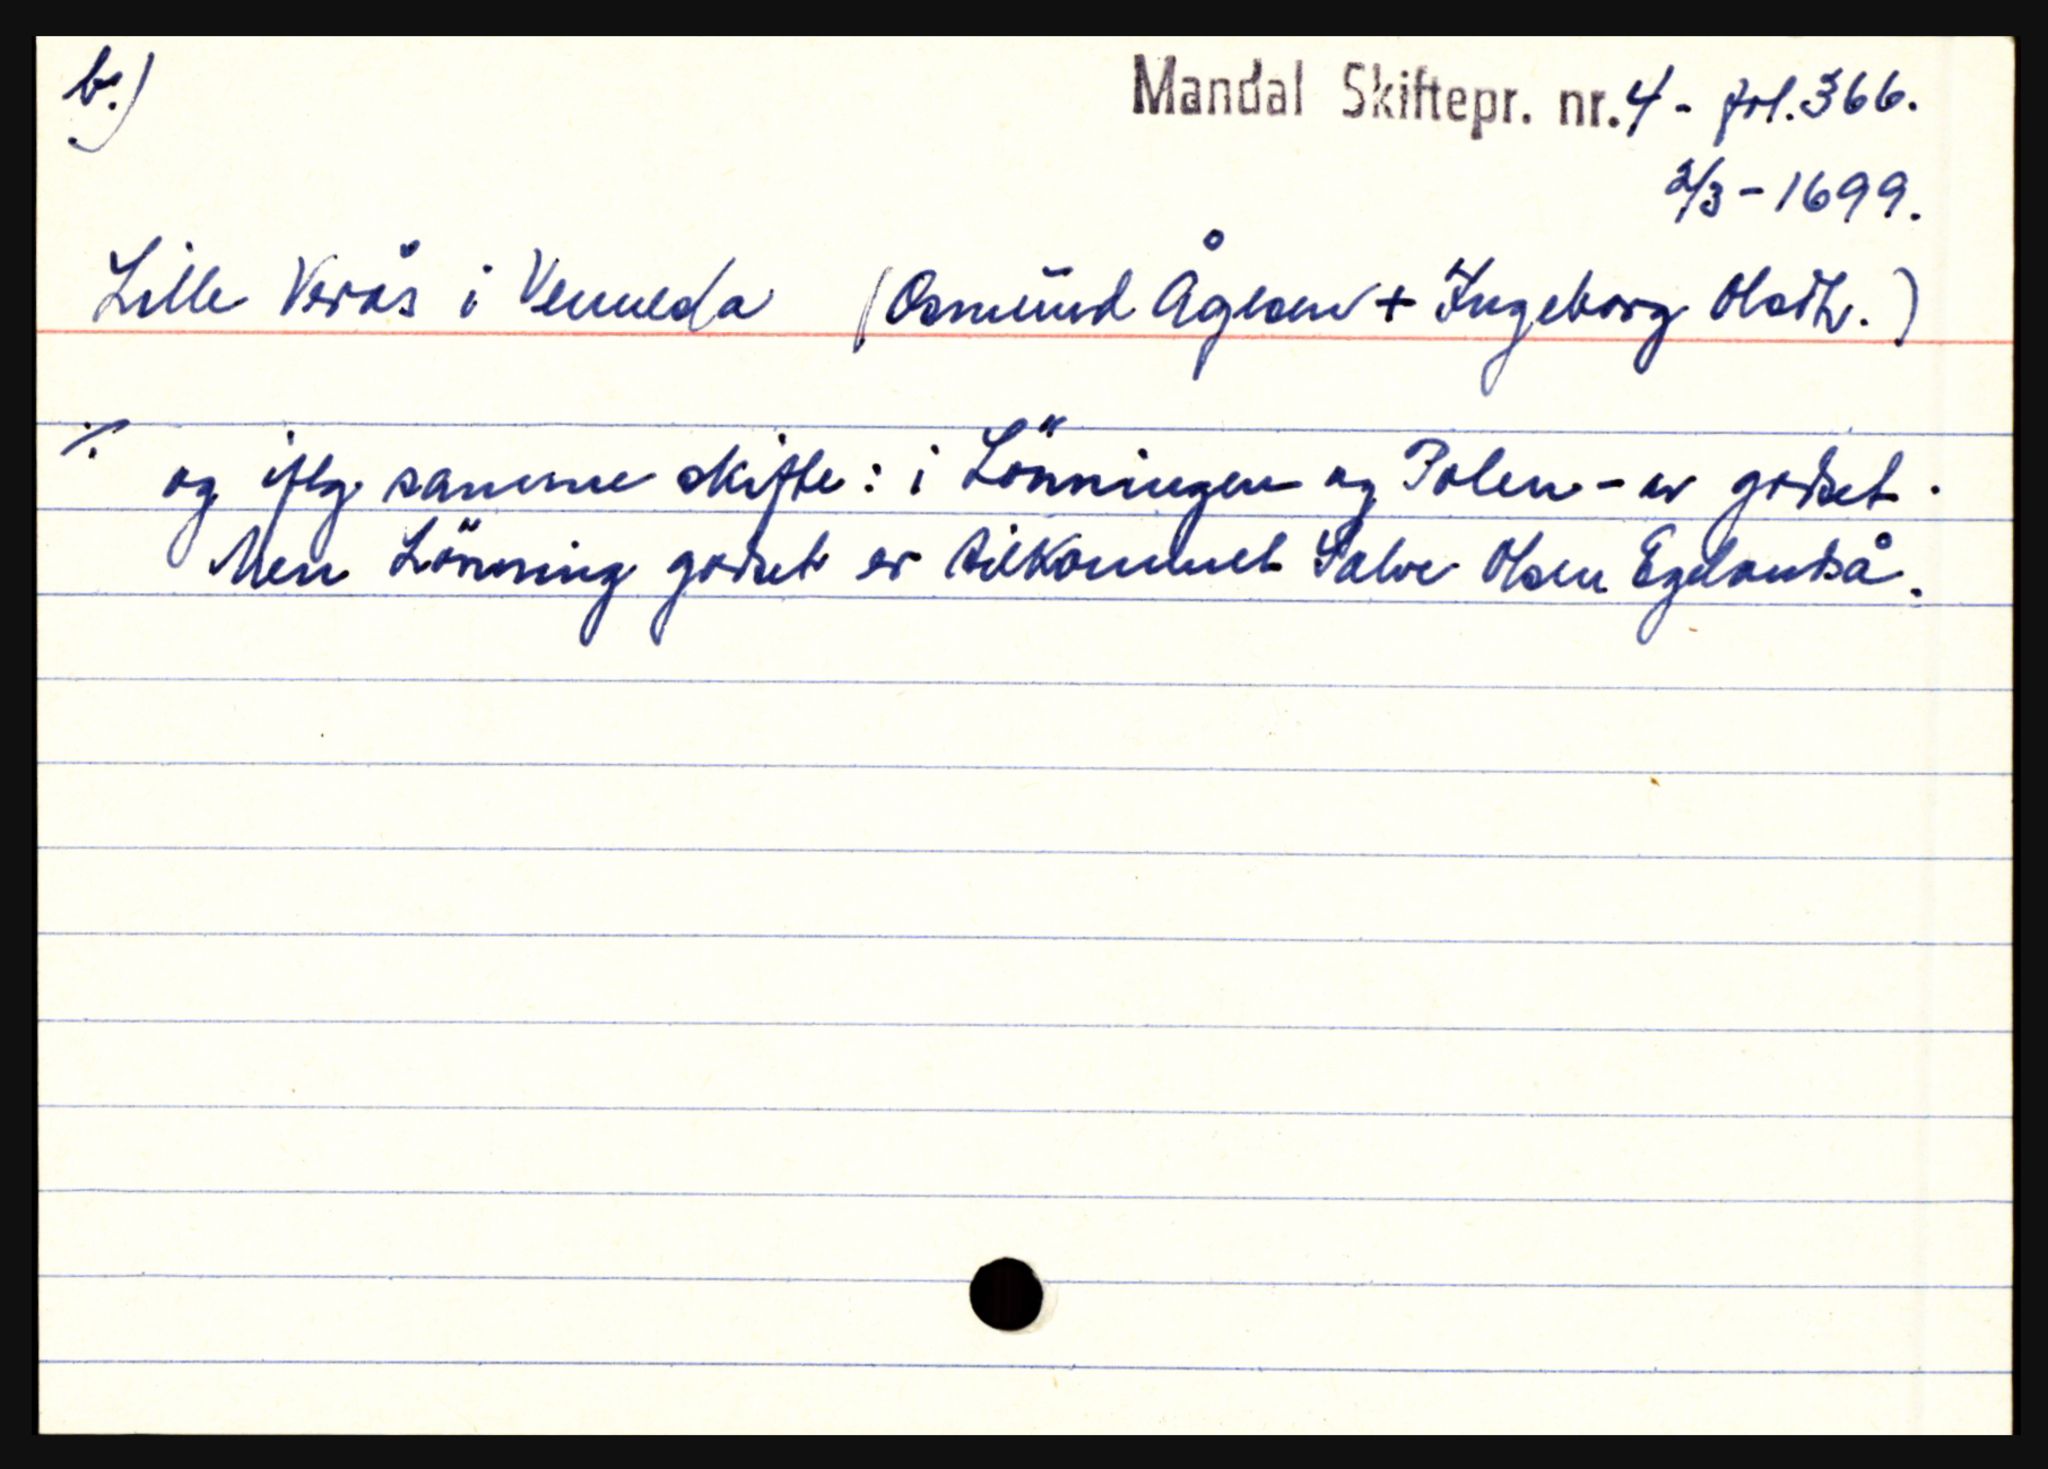 b.)
Mandal Skiftepr. nr. 4 - fol. 366.
2/3 - 1699.
Lille Verås i Venneda (Osmund Ågesen + Ingeborg Olsdtr.)
·/· og iflg. samme skifte: i Lönningen og Polen - av godset.
Men Lönning godset er tilkommet Salve Olsen Egelandså.